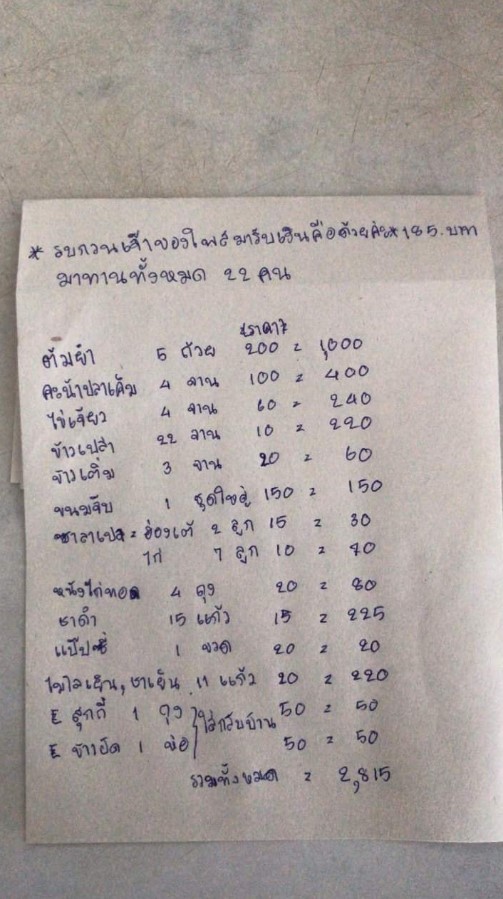 * รบกวนเจ้าของโพสมารับเงินคือด้วยค่ะ* 185.บาท
มาทานทั้งหมด 22 คน
{ราคา}
ต้มยำ 5 ถ้วย 200 = 1,000
คะน้าปลาเค็ม 4 จาน 100 = 400
ไข่เจียว 4 จาน 60 = 240
ข้าวเปล่า 22 จาน 10 = 220
ข้าวเติ่ม 3 จาน 20 = 60
ขนมจีบ 1 ชุดใหญ่ 150 = 150
ซาลาเปา = ฮ่องเต้ 2 ลูก 15 = 30
ไก่ 7 ลูก 10 = 70
หนังไก่ทอด 4 ถุง 20 = 80
ชาดำ 15 แก้ว 15 = 225
แป๊ปซี่ 1 ขวด 20 = 20
เย็น, ชาเย็น 11 แก้ว 20 = 220
E สุกกี้ 1 ถุง } ใส่กลับบ้าน 50 = 50
E ข้าวผัด 1 ห่อ 50 = 50
รวมทั้งหมด = 2,815